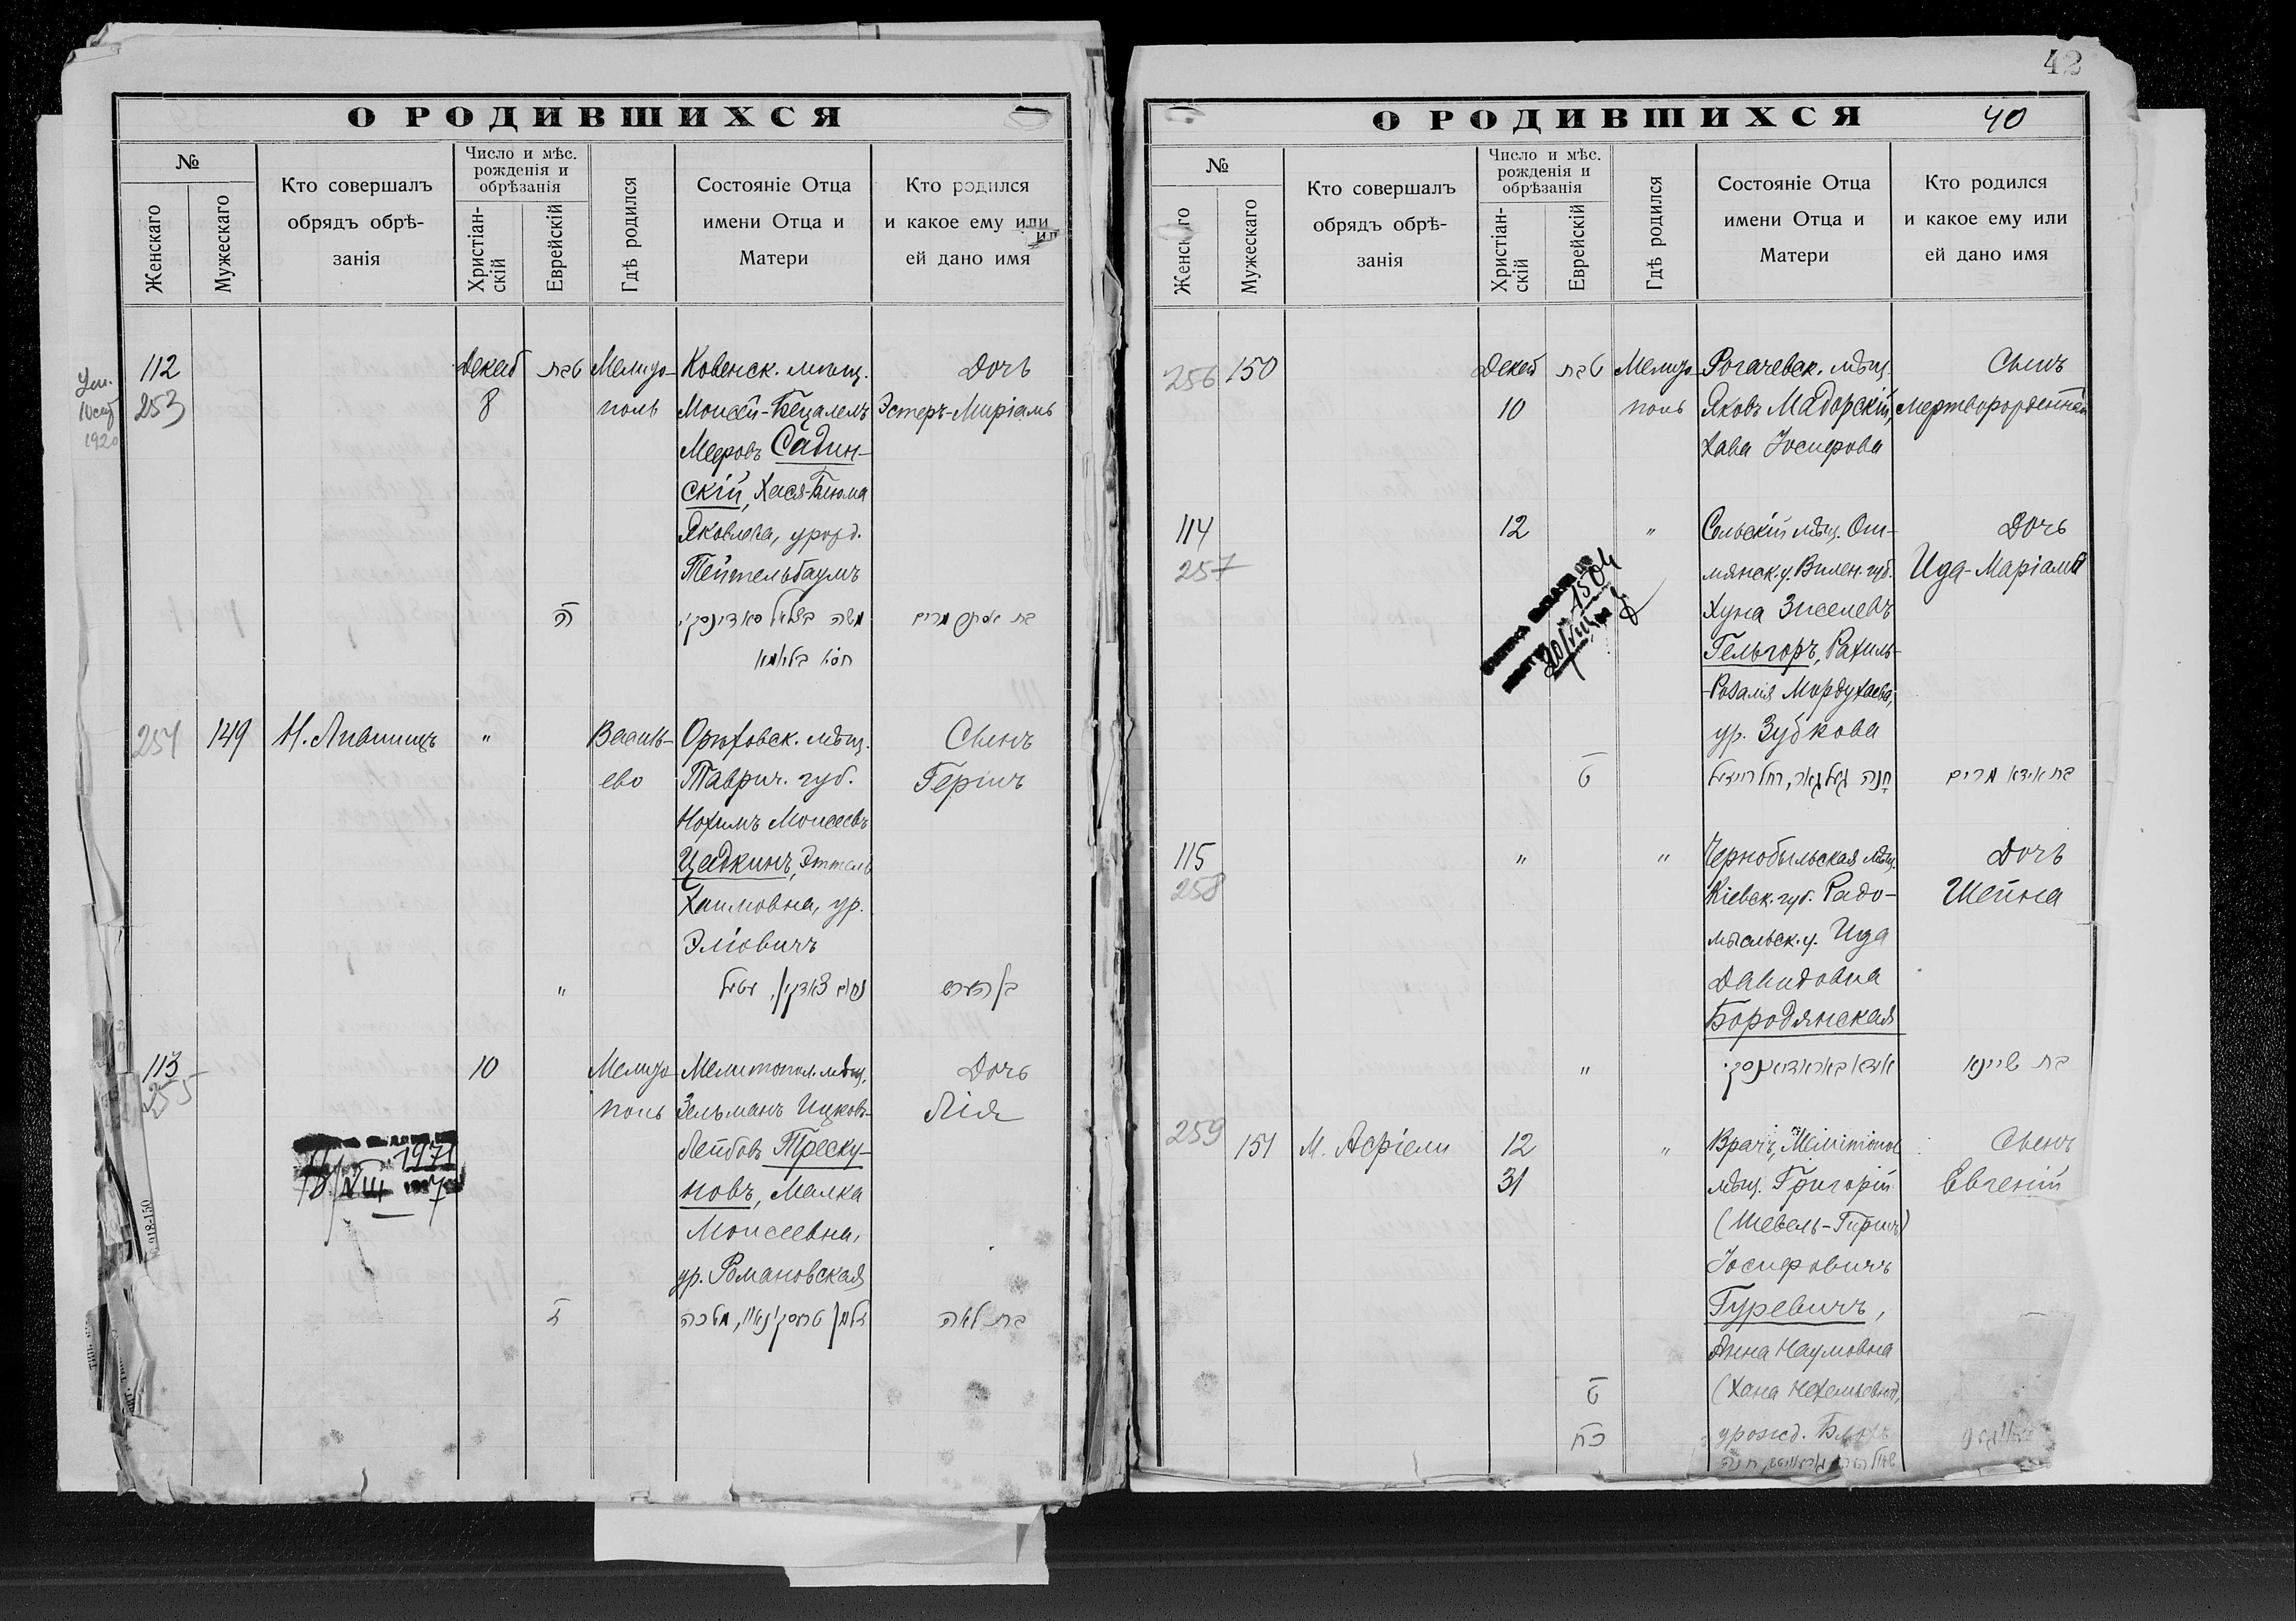 О РОДИВШИХСЯ
№
Женскаго
Мужескаго
Кто совершалъ
обрядъ обрѣ-
занія
Число и мѣс.
рожденія и
обрѣзанія
Христіан-
скій
Еврейскій
Гдѣ родился
Состояніе Отца
имени Отца и
Матери
Кто родился
и какое ему или
ей дано имя
112
253
Ум.
1920
Декаб
8
טבת
ה
Мелито-
поль
Ковенск. мѣщ.
Моисей-Бецалелъ
Мееровъ Садин-
скій, Хася-Блюма
Яковлева, урожд.
Тейтельбаумъ
משה בצלאל סאדינסקי,
חסיא בלומא
Дочь
Эстеръ-Миріамъ
בת אסתר מרים
254
149
Н. Лившицъ
"
"
Василь-
ево
Орѣховск. мѣщ.
Таврич. губ.
Нохимъ Моисеевъ
Цадкинъ, Эттель
Хаимовна, ур.
Эліовичъ
נחום צאדקין, עטיל
Сынъ
Гершъ
בן הערש
113
255
10
ז
Мелито
поль
Мелитопол. мѣщ.
Зельманъ Ицковъ-
Лейбовъ Треску-
новъ, Малка
Моисеевна,
ур. Романовская
זלמן טרעסקונאוו, מלכה
Дочь
Лія
בת לאה
1971
42
О РОДИВШИХСЯ
40
№
Женскаго
Мужескаго
Кто совершалъ
обрядъ обрѣ-
занія
Число и мѣс.
рожденія и
обрѣзанія
Христіан-
скій
Еврейскій
Гдѣ родился
Состояніе Отца
имени Отца и
Матери
Кто родился
и какое ему или
ей дано имя
256
150
Декаб
10
טבת
Мелито-
поль
Рогачевск. мѣщ.
Яковъ Мадорскій,
Хава Іосифова
Сынъ
мертворожденный
114
257
12
ט
"
1504
Сельскій мѣщ. Ош-
мянск. у. Вилен. губ.
Хуна Зиселевъ
Гельгоръ, Рахиль-
-Розалія Мордухаева,
ур. Зубкова
Дочь
Ида-Маріамъ
בת אידא מרים
115
258
"
"
"
Чернобыльская мѣщ.
Кіевск. губ. Радо-
мысльск. у. Ида
Давидовна
Бородянская
אידא באראדיאנסקי
Дочь
Шейна
בת שיינא
259
151
М. Асріели
12
31
ט
כח
"
Врачъ, Мелитопол
мѣщ. Григорій
(Шевель-Гиршъ)
Іосифовичъ
Гуревичъ,
Анна Наумовна
(Хана Нохемьевна),
урожд. Блохъ
Сынъ
Евгеній